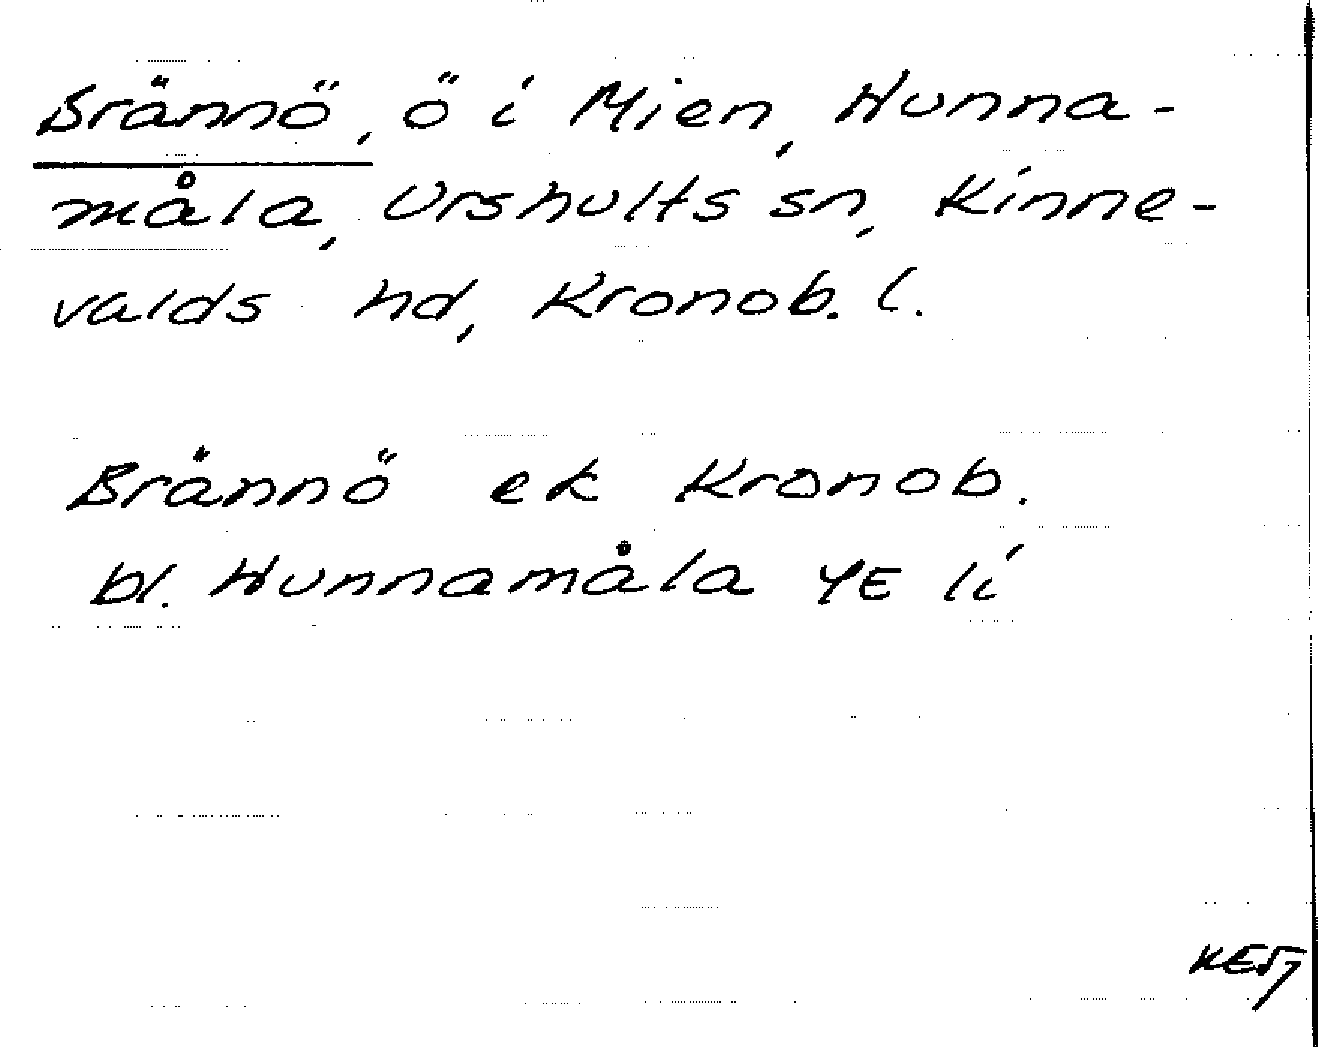 Brännö, ö i Mien, Hunna-
måla, Urshults sn, Kinne-
valds hd, Kronob. l.
Brännö ek Kronob.
bl. Hunnamåla YE li